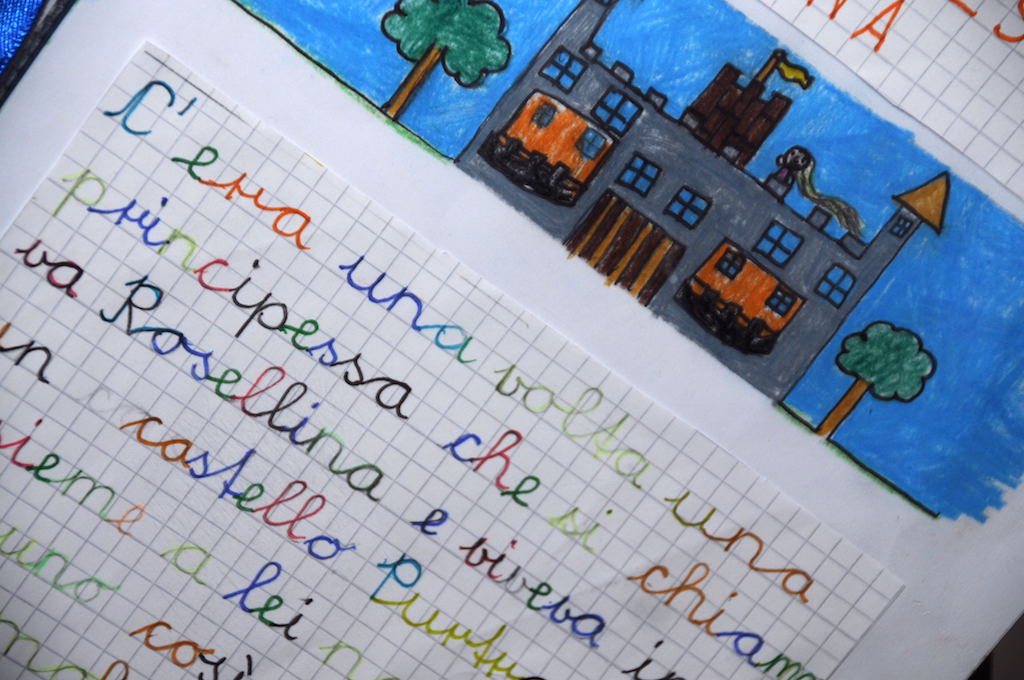 NA - S
C'era una volta una
principessa che si chiama
va Rosellina e viveva in
un castello Purtr
sieme a lei n
uno così